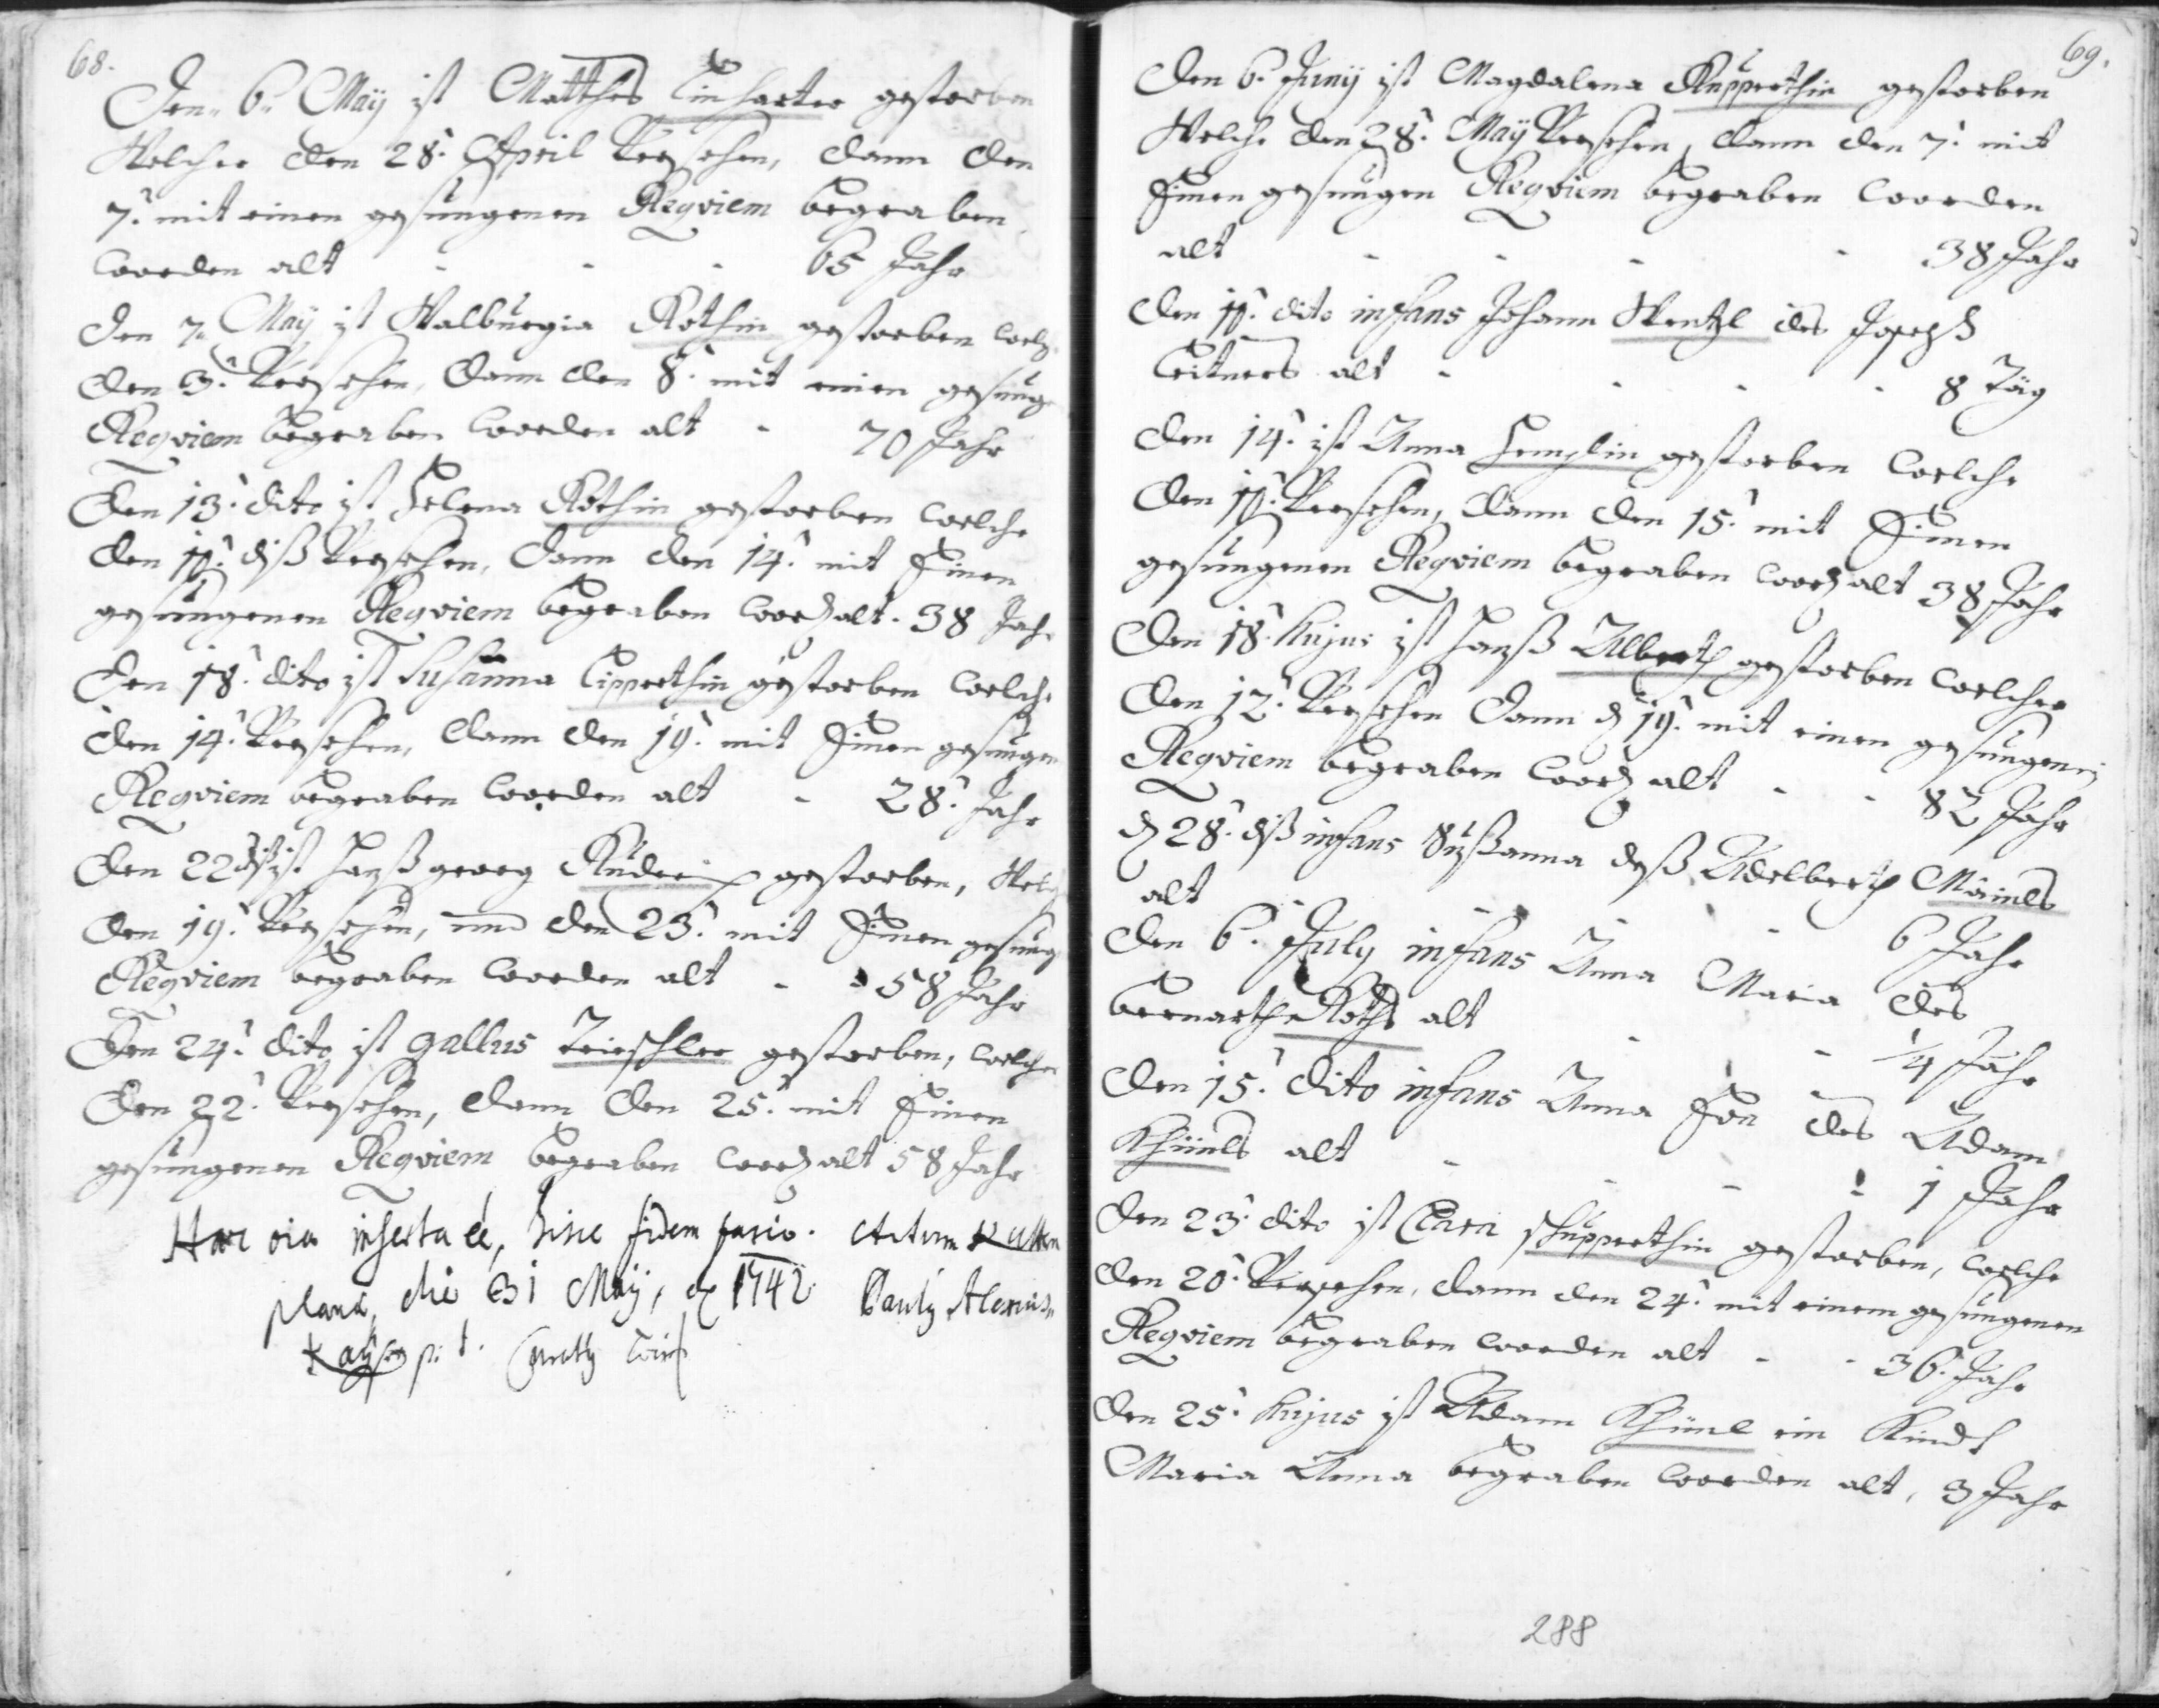 68.
Den 6. Maÿ ist Matthes Linharter gestorben
Welcher den 28. April Versehen, dann den
7. mit einen gesungenen Reqviem begraben
worden alt - - - 65 Jahr
den 7. Maÿ ist Walburgia Rothin gestorben welch
den 3. Versehen, dann den 8. mit einen gesung
Reqviem begraben worden alt - 70 Jahr
Den 13. dito ist Helena Rothin gestorben welche
den 11. diß Versehen, dann den 14. mit Einen
gesungenen Reqviem begraben word alt. 38 Jahr
Den 18. dito ist Susanna Lipperthin gestorben welche
den 14. Versehen, dann den 19. mit Einen gesungen
Reqviem begraben worden alt - 28. Jahr
den 22 diß ist Hanß georg gestorben, Welch
den 19. Versehen, und den 23. mit Einen gesung
Reqviem begraben worden alt - - 58 Jahr
Den 24. dito ist gallus Trieschler gestorben, welcher
den 22. Versehen, dann den 25. mit Einen
gesungenen Reqviem begraben word alt 58 Jahr
inserta eé, hisce fidem facio. Actum
plana, die 31 Maÿ, 1742 Pauly
p: t.
69.
Den 6. Junÿ ist Magdalena Rupperthin gestorben
Welche den 28. Maÿ Versehen, dann den 7. mit
Einen gesungen Reqviem begraben worden
alt - - - - 38 Jahr
den 11. dito infans Johann Wentzl des Josephß
Leitners alt - - - - 8 Täg
den 14. ist Anna Hemplin gestorben welche
den 11. Versehen, dann den 15. mit Einen
gesungenen Reqviem begraben word alt 38 Jahr
den 18. hujus ist Hanß Alberth gestorben welcher
den 12. Versehen dann d 19. mit einen gesungenen
Reqviem begraben word alt - - 82 Jahr
d 28. diß infans Sußanna deß Adelberth Maimls
alt - - - - 6 Jahr
den 6. July infans Anna Maria des
bernarth Roths alt - - 1/4 Jahr
den 15. dito infans Anna Eva des Adam
Khümls alt - - - - 1 Jahr
den 23. dito ist Clara schupperthin gestorben, welche
den 20. Versehen, dann den 24. mit einem gesungenen
Reqviem begraben worden alt - - 36. Jahr
den 25. hujus ist Adam Khüml ein Kindt
Maria Anna begraben worden alt, 3 Jahr
288